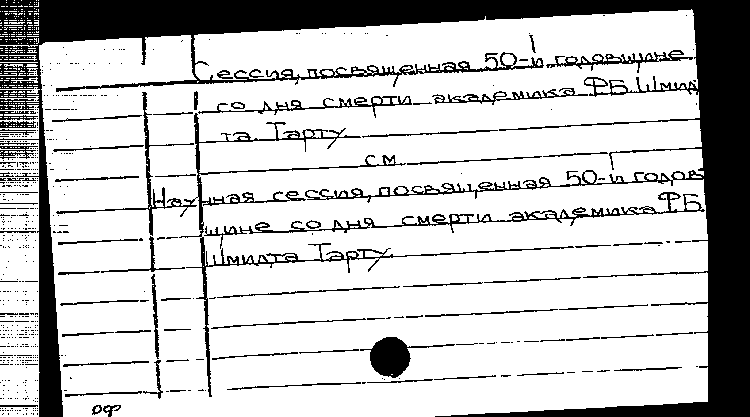 Сессия, посвященная 50-й годовщине
со дня смерти академика Ф.Б. Шмид
та Тарту.
см.
Научная сессия, посвященная 50-й годов
щине со дня смерти академика Ф.Б.
Шмидта Тарту.
оф